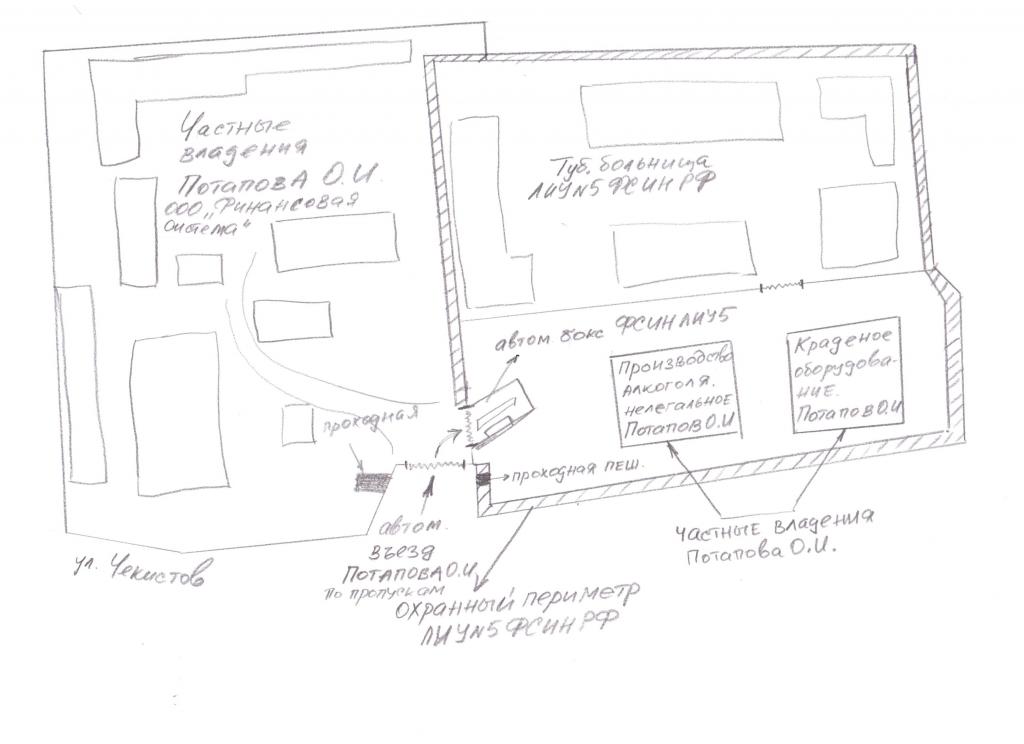 Частные
владения
Потапова О.И.
ООО „Финансовая
система"
Туб. больница
ЛИУ№5 ФСИН РФ
автом. бокс ФСИН ЛИУ5
Производство
алкоголя.
нелегальное
Потапов О.И
Краденое
оборудова-
ние.
Потапов О.И
проходная
проходная пеш.
автом.
въезд
Потапова О.И
по пропускам
частные владения
Потапова О.И.
ул. Чекистов
охранный периметр
ЛИУ№5 ФСИН РФ